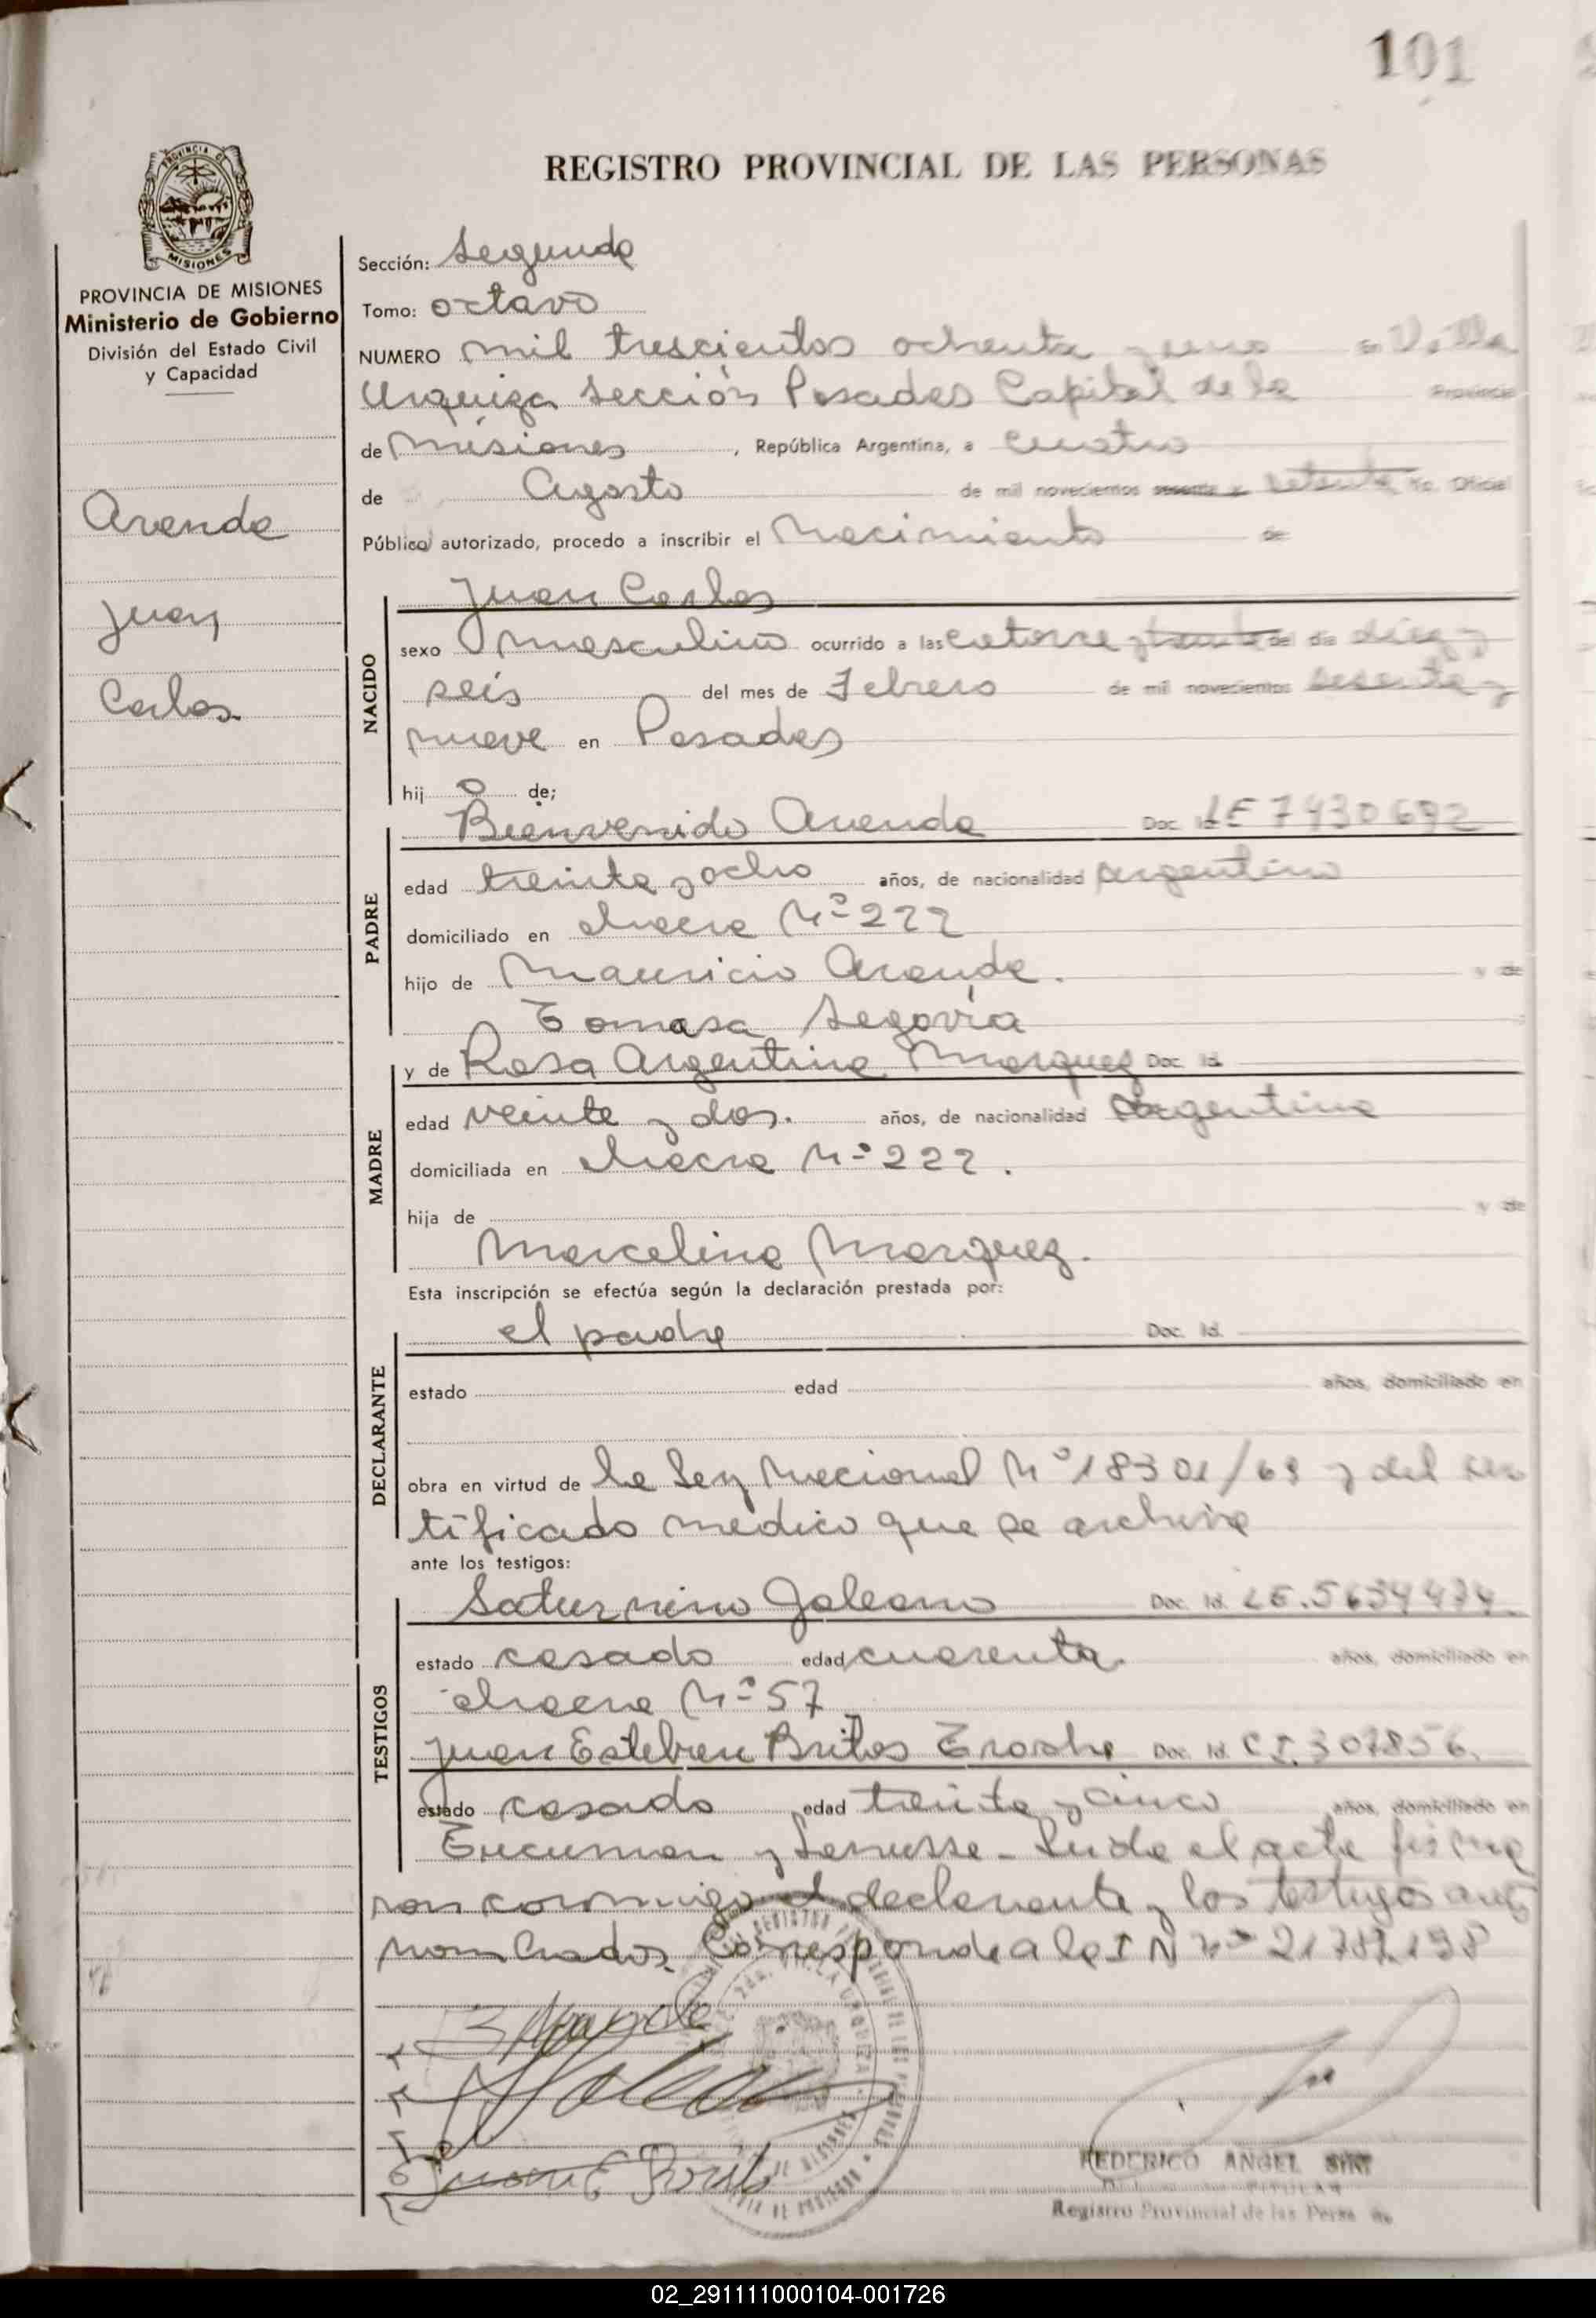 101
REGISTRO PROVINCIAL DE LAS PERSONAS
PROVINCIA DE MISIONES
Ministerio de Gobierno
División del Estado Civil
y Capacidad
Arenda
Juan
Carlos
Sección: Segunda
Tomo: octavo
NUMERO mil trescientos ochenta y uno en Villa
Urquiza Sección Posadas Capital de la Provincia
de Misiones, República Argentina, a cuatro
de Agosto de mil novecientos sesenta y setenta Yo. Oficial
Público autorizado, procedo a inscribir el Nacimiento de
NACIDO
Juan Carlos
sexo masculino ocurrido a las catorce y treinta del día diez y
seis del mes de Febrero de mil novecientos sesenta y
nueve en Posadas
hijo de;
PADRE
Bienvenido Arenda Doc. Id. LE 7430692
edad treinta y ocho años, de nacionalidad argentino
domiciliado en chacra Nº 222
hijo de Mauricio Arenda. y de
Tomasa Segovia
MADRE
y de Rosa Argentina Marquez Doc. Id.
edad veinte y dos. años, de nacionalidad Argentina
domiciliada en chacra Nº 222.
hija de y de
Marcelina Marquez.
Esta inscripción se efectúa según la declaración prestada por:
DECLARANTE
el padre Doc. Id.
estado edad años, domiciliado en
obra en virtud de la Ley Nacional Nº 18301/69 y del cer
tificado medico que se archiva
ante los testigos:
TESTIGOS
Saturnino Galeano Doc. Id. LE. 5634474.
estado casado edad cuarenta años, domiciliado en
chacra Nº 57
Juan Esteban Britos Doc. Id. C I. 307856.
estado casado edad treinta y cinco años, domiciliado en
Tucuman y Lanusse - Leida el acta firma
ron conmigo el declarante y los testigos
nombrados. Corresponde a la I N Nº 21782198
B Arande
Juan E Brito
FEDERICO ANGEL SIRI
TITULAR
Registro Provincial de las Personas
02_291111000104-001726